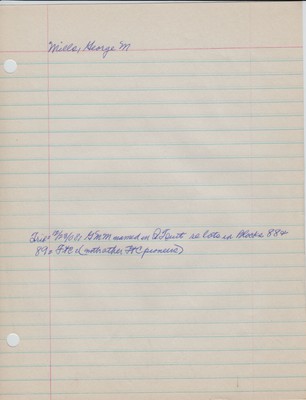 Mills, George M
Trib: 9/29/81 GMM named in Q.T. suit re lots in Blocks 88 &
89 FtC (with other FtC pioneers)